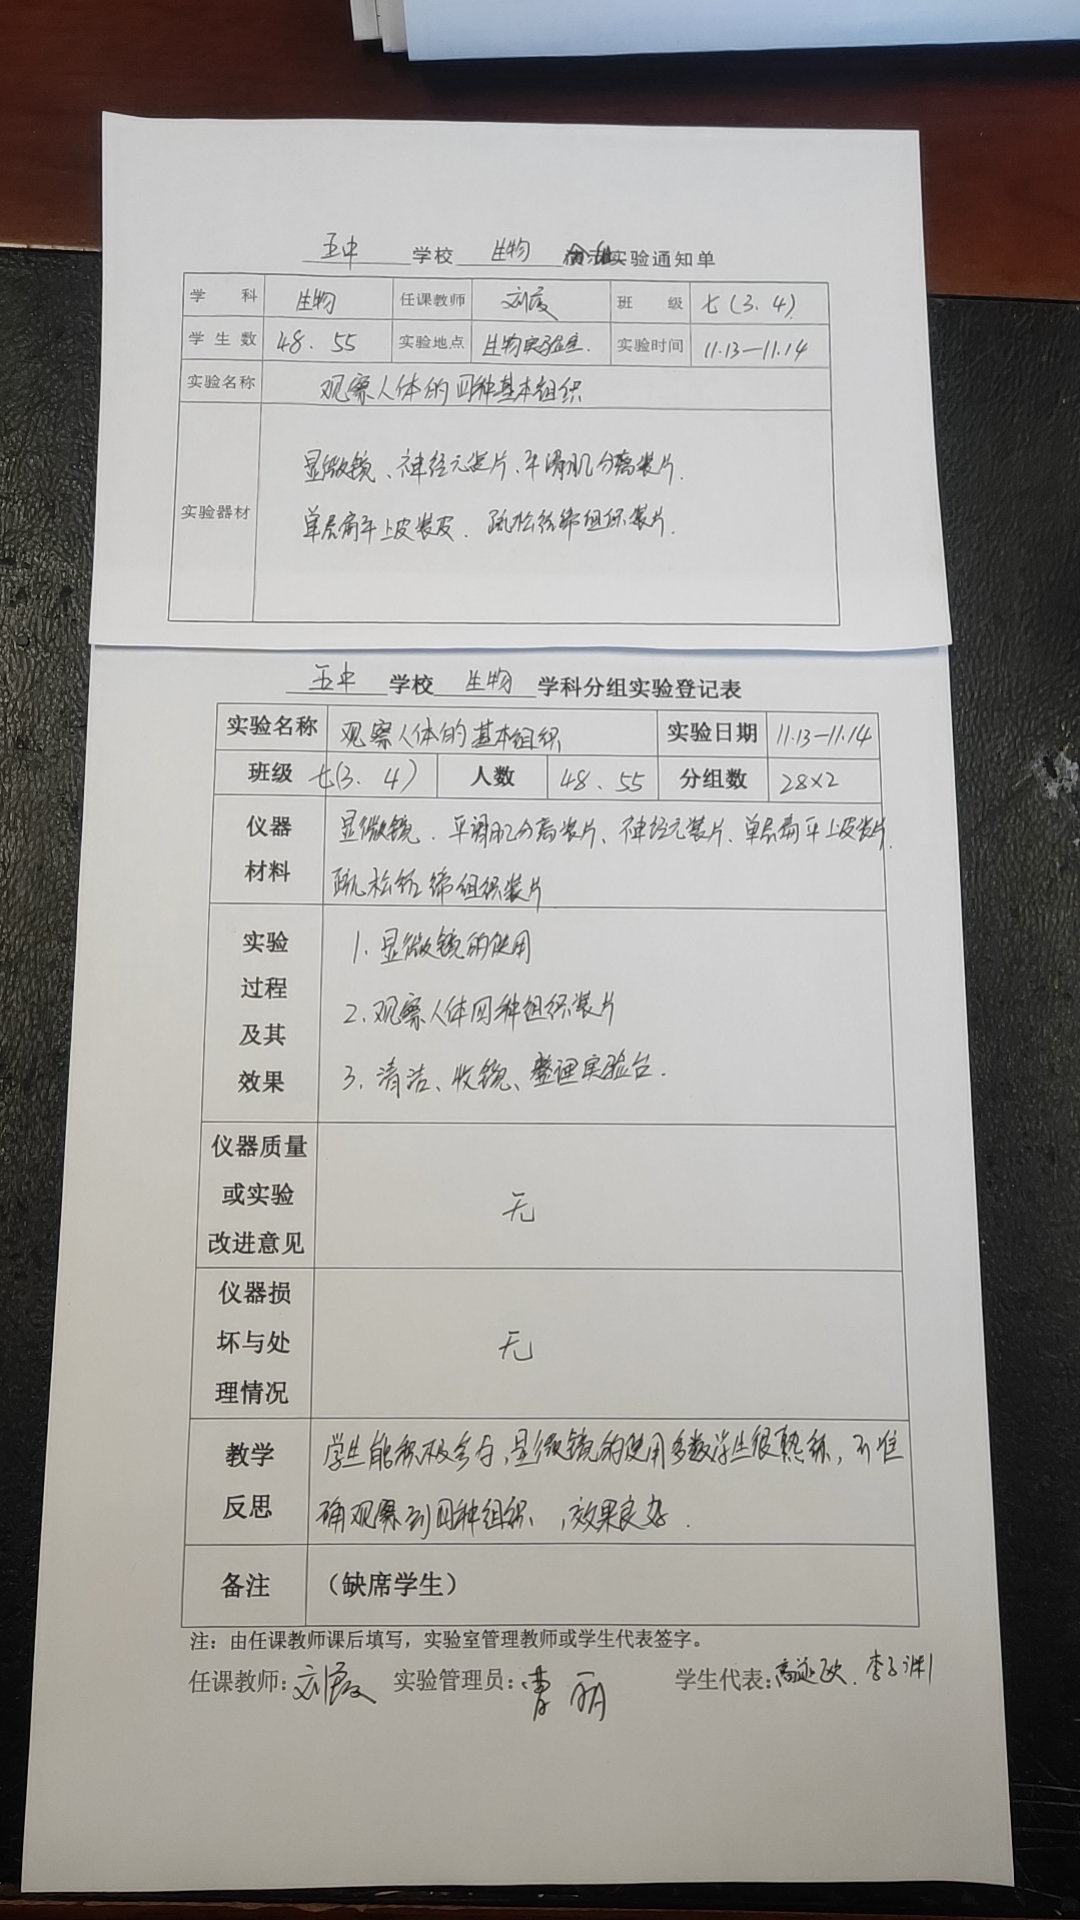 五中 学校 生物 实验通知单
学 科 生物 任课教师 刘霞 班 级 七(3、4)
学生数 48、55 实验地点 生物实验室. 实验时间 11.13—11.14
实验名称 观察人体的四种基本组织
实验器材
显微镜、神经元装片、平滑肌分离装片.
单层扁平上皮装皮、疏松结缔组织装片.
五中 学校 生物 学科分组实验登记表
实验名称 观察人体的基本组织 实验日期 11.13—11.14
班级 七(3、4) 人数 48、55 分组数 28×2
仪器材料
显微镜、平滑肌分离装片、神经元装片、单层扁平上皮装片、
疏松结缔组织装片
实验过程及其效果
1.显微镜的使用
2.观察人体四种组织装片
3.清洁、收镜、整理实验台.
仪器质量或实验改进意见 无
仪器损坏与处理情况 无
教学反思
学生能积极参与,显微镜的使用多数学生很熟练,可准
确观察到四种组织,效果良好.
备注 (缺席学生)
注:由任课教师课后填写,实验室管理教师或学生代表签字。
任课教师:刘霞 实验管理员:曹丽 学生代表: